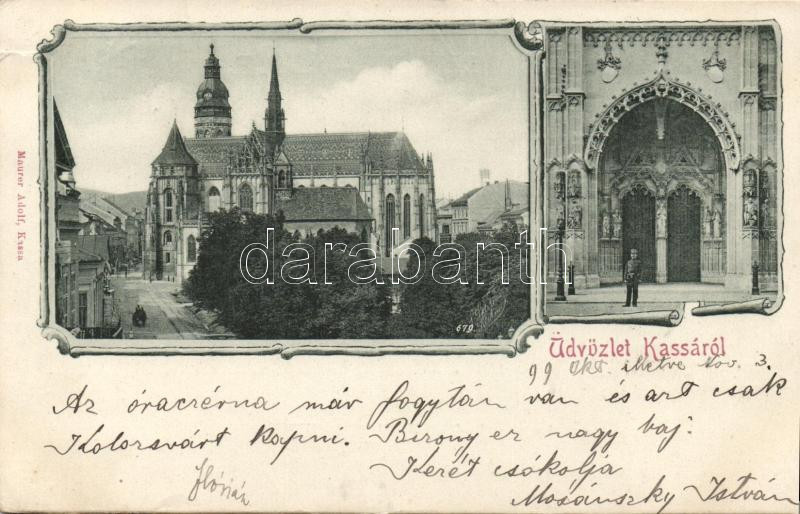 Maurer Adolf, Kassa
679.
darabanth.com
Üdvözlet Kassáról
99 Okt. illetve Nov. 3.
Az óraczérna már fogytán van és azt csak
Kolozsvárt kapni. Bizony ez nagy baj.
Kezét csókolja
Flórián
Mosánszky István